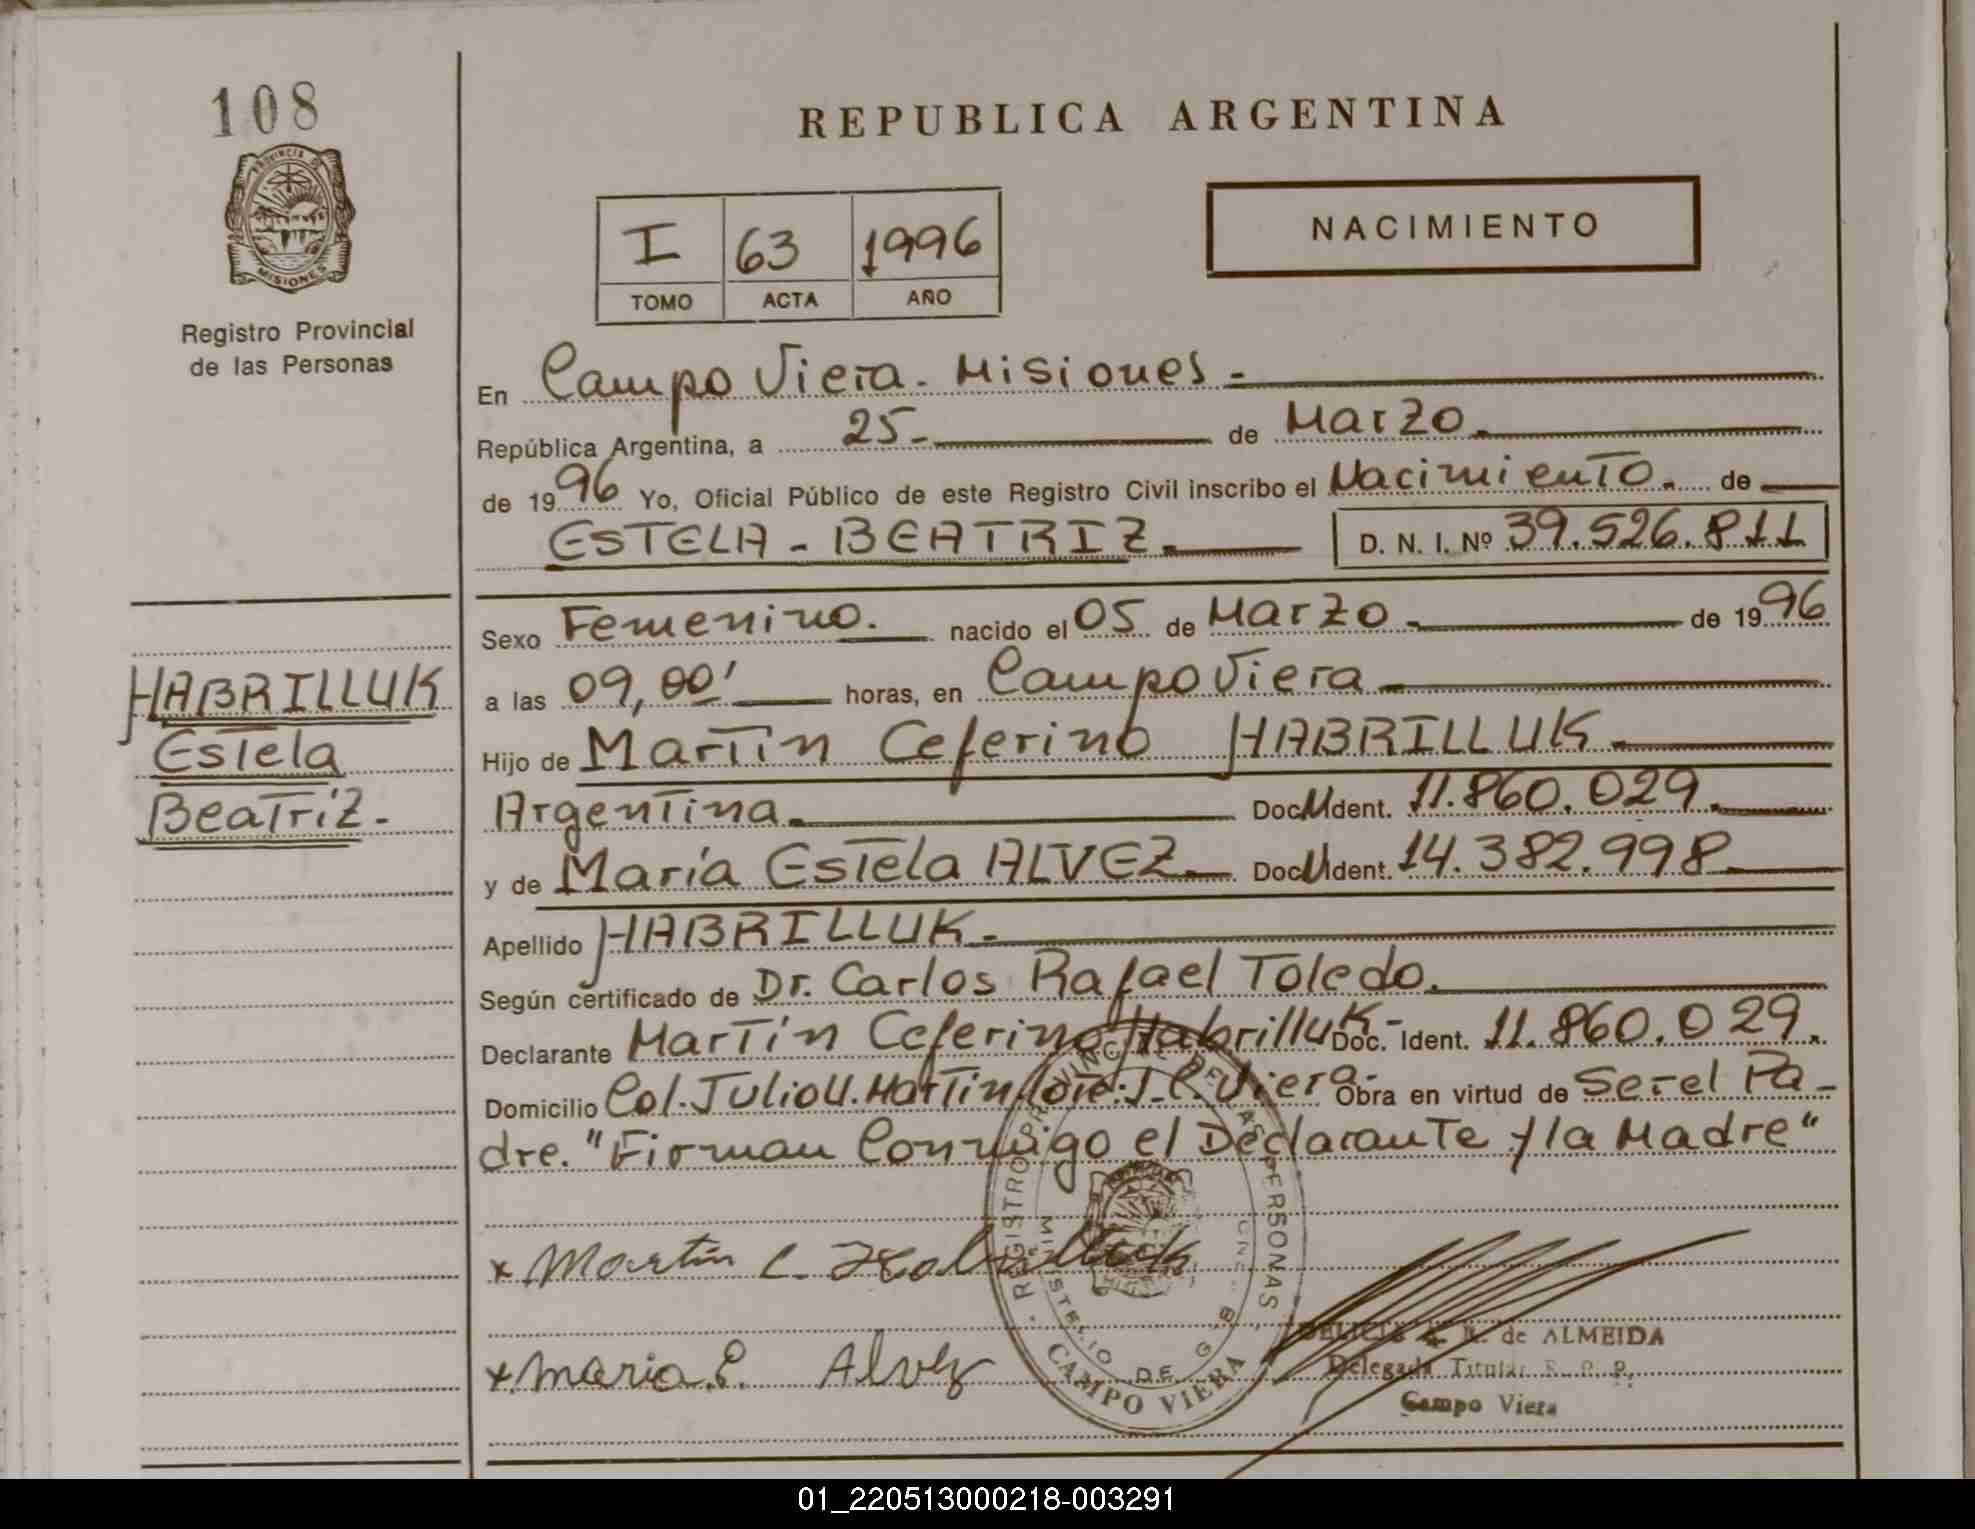 108
PROVINCIA DE
MISIONES
Registro Provincial
de las Personas
REPUBLICA ARGENTINA
I 63 1996
TOMO ACTA AÑO
NACIMIENTO
En Campo Viera. Misiones -
República Argentina, a 25- de Marzo.
de 1996 Yo, Oficial Público de este Registro Civil inscribo el Nacimiento. de
ESTELA - BEATRIZ. D. N. I. Nº 39.526.811
Sexo Femenino. nacido el 05 de Marzo. de 1996
a las 09,00' horas, en Campo Viera
HABRILLUK
Estela
Beatriz.-
Hijo de Martín Ceferino HABRILLUK.
Argentina. Doc. Ident. 11.860.029.
y de María Estela ALVEZ. Doc. Ident. 14.382.998
Apellido HABRILLUK.
Según certificado de Dr. Carlos Rafael Toledo.
Declarante Martín Ceferino Habrilluk- Doc. Ident. 11.860.029.
Domicilio Col. Julio U. Martin Viera- Obra en virtud de Ser el Pa-
dre. "Firman Conmigo el Declarante y la Madre"
x Martín C. Habrilluk
x maria. E. Alvez
REGISTRO PROVINCIAL DE LAS PERSONAS
MINISTERIO DE GOB
CAMPO VIERA
de ALMEIDA
Delegada Titular R. P. P.
Campo Viera
01_220513000218-003291